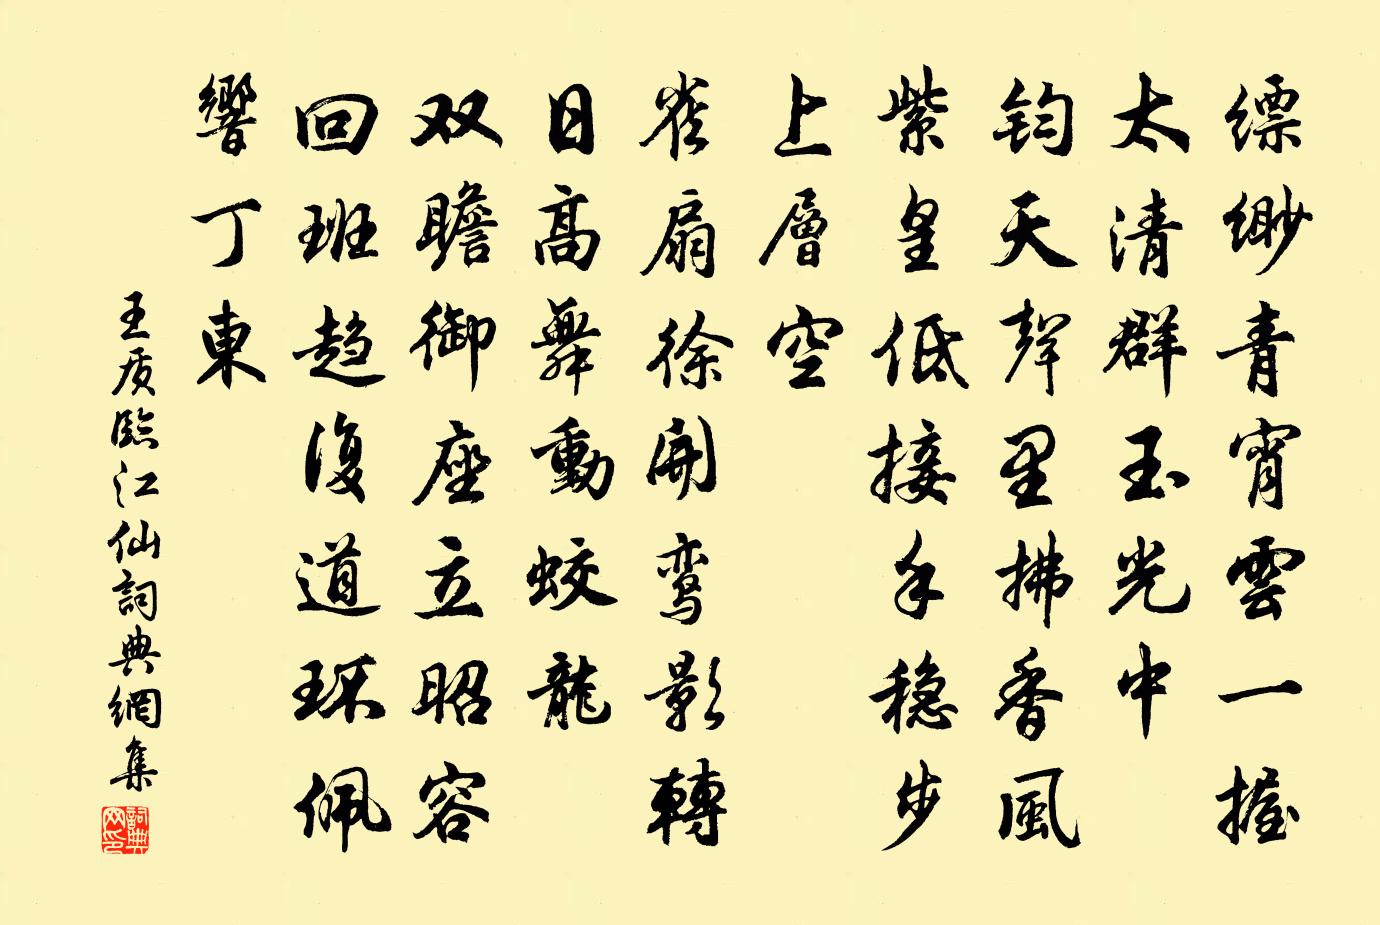 缥缈青宵雲一握
太清群玉光中
钧天聲里拂香風
紫皇低接手稳步
上層空
雀扇徐開鸾影轉
日高舞動蛟龍
双瞻御座立昭容
回班趋復道环佩
響丁東
王质臨江仙詞典網集
詞典网印